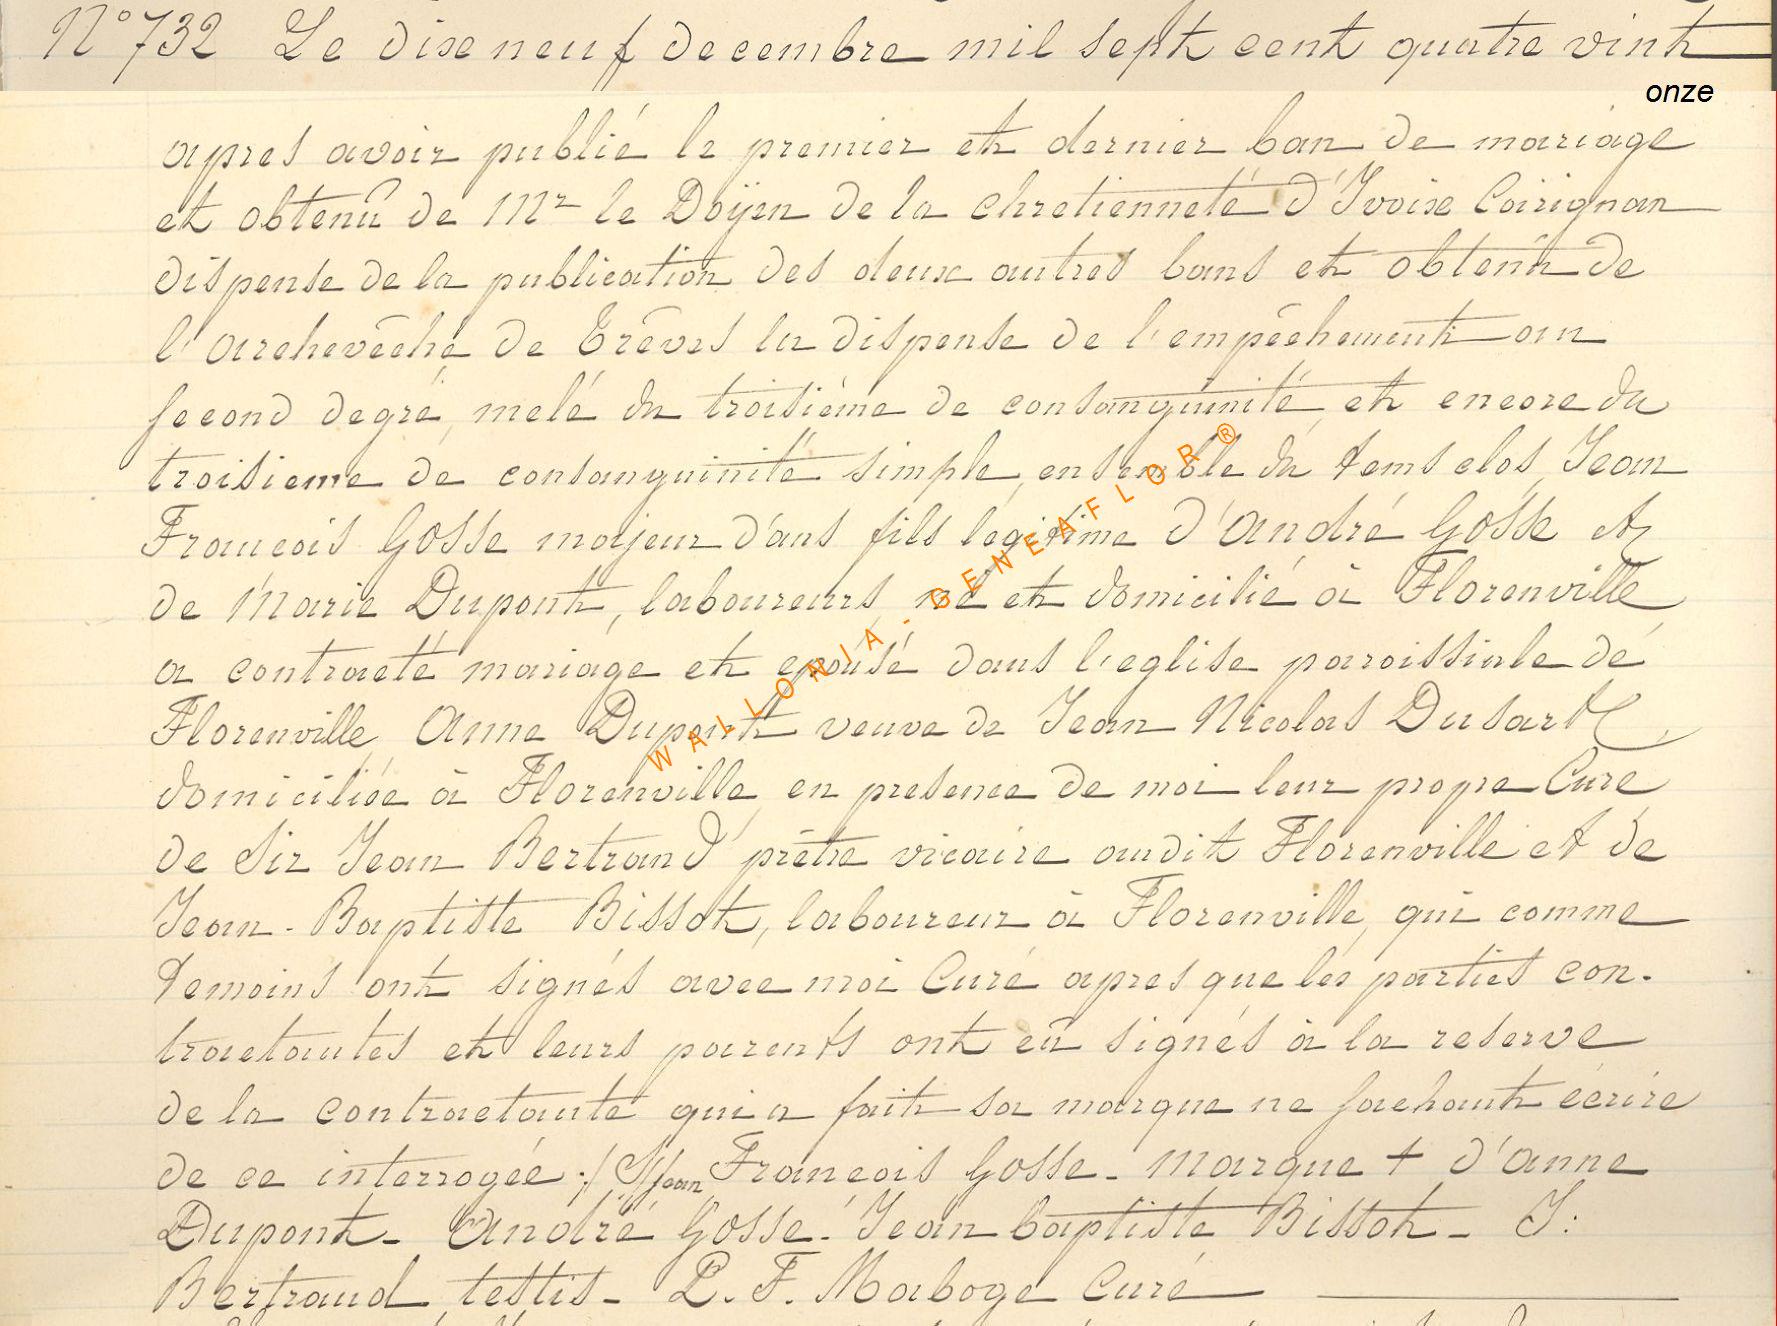 N° 732 Le dixe neuf decembre mil sept cent quatre vint
onze
apres avoir publié le premier et dernier ban de mariage
et obtenû de Mr le Doÿen de la chretienneté d'Ivoix Carignan
dispense de la publication des deux autres bans et obtenû de
l'archevêché de Trêves la dispense de l'empêchement au
second degré, melé du troisiéme de consanguinité, et encore du
troisieme de consanguinité simple, ensemble du tems clos, Jean
Francois Gosse majeur d'ans fils legitime d'andré Gosse et
de Marie Dupont, laboureurs, né et domicilié à Florenville
a contracté mariage et epousé dans l'eglise paroissiale de
Florenville, Anne Dupont veuve de Jean Nicolas Dusart,
domiciliée à Florenville, en presence de moi leur propre Curé,
de Sir Jean Bertrand prêtre vicaire audit Florenville et de
Jean-Baptiste Bissot, laboureur à Florenville, qui comme
temoins ont signés avec moi Curé apres que les parties con-
tractantes et leurs parents ont eû signés à la reserve
de la contractante qui a fait sa marque ne sachant écrire
de ce interrogée :/ S/ Jean Francois Gosse - Marque + d'anne
Dupont - André Gosse - Jean baptiste Bissot - J:
Bertrand testis - P. F. Maboge Curé
WALLONIA - GENEAFLOR ®